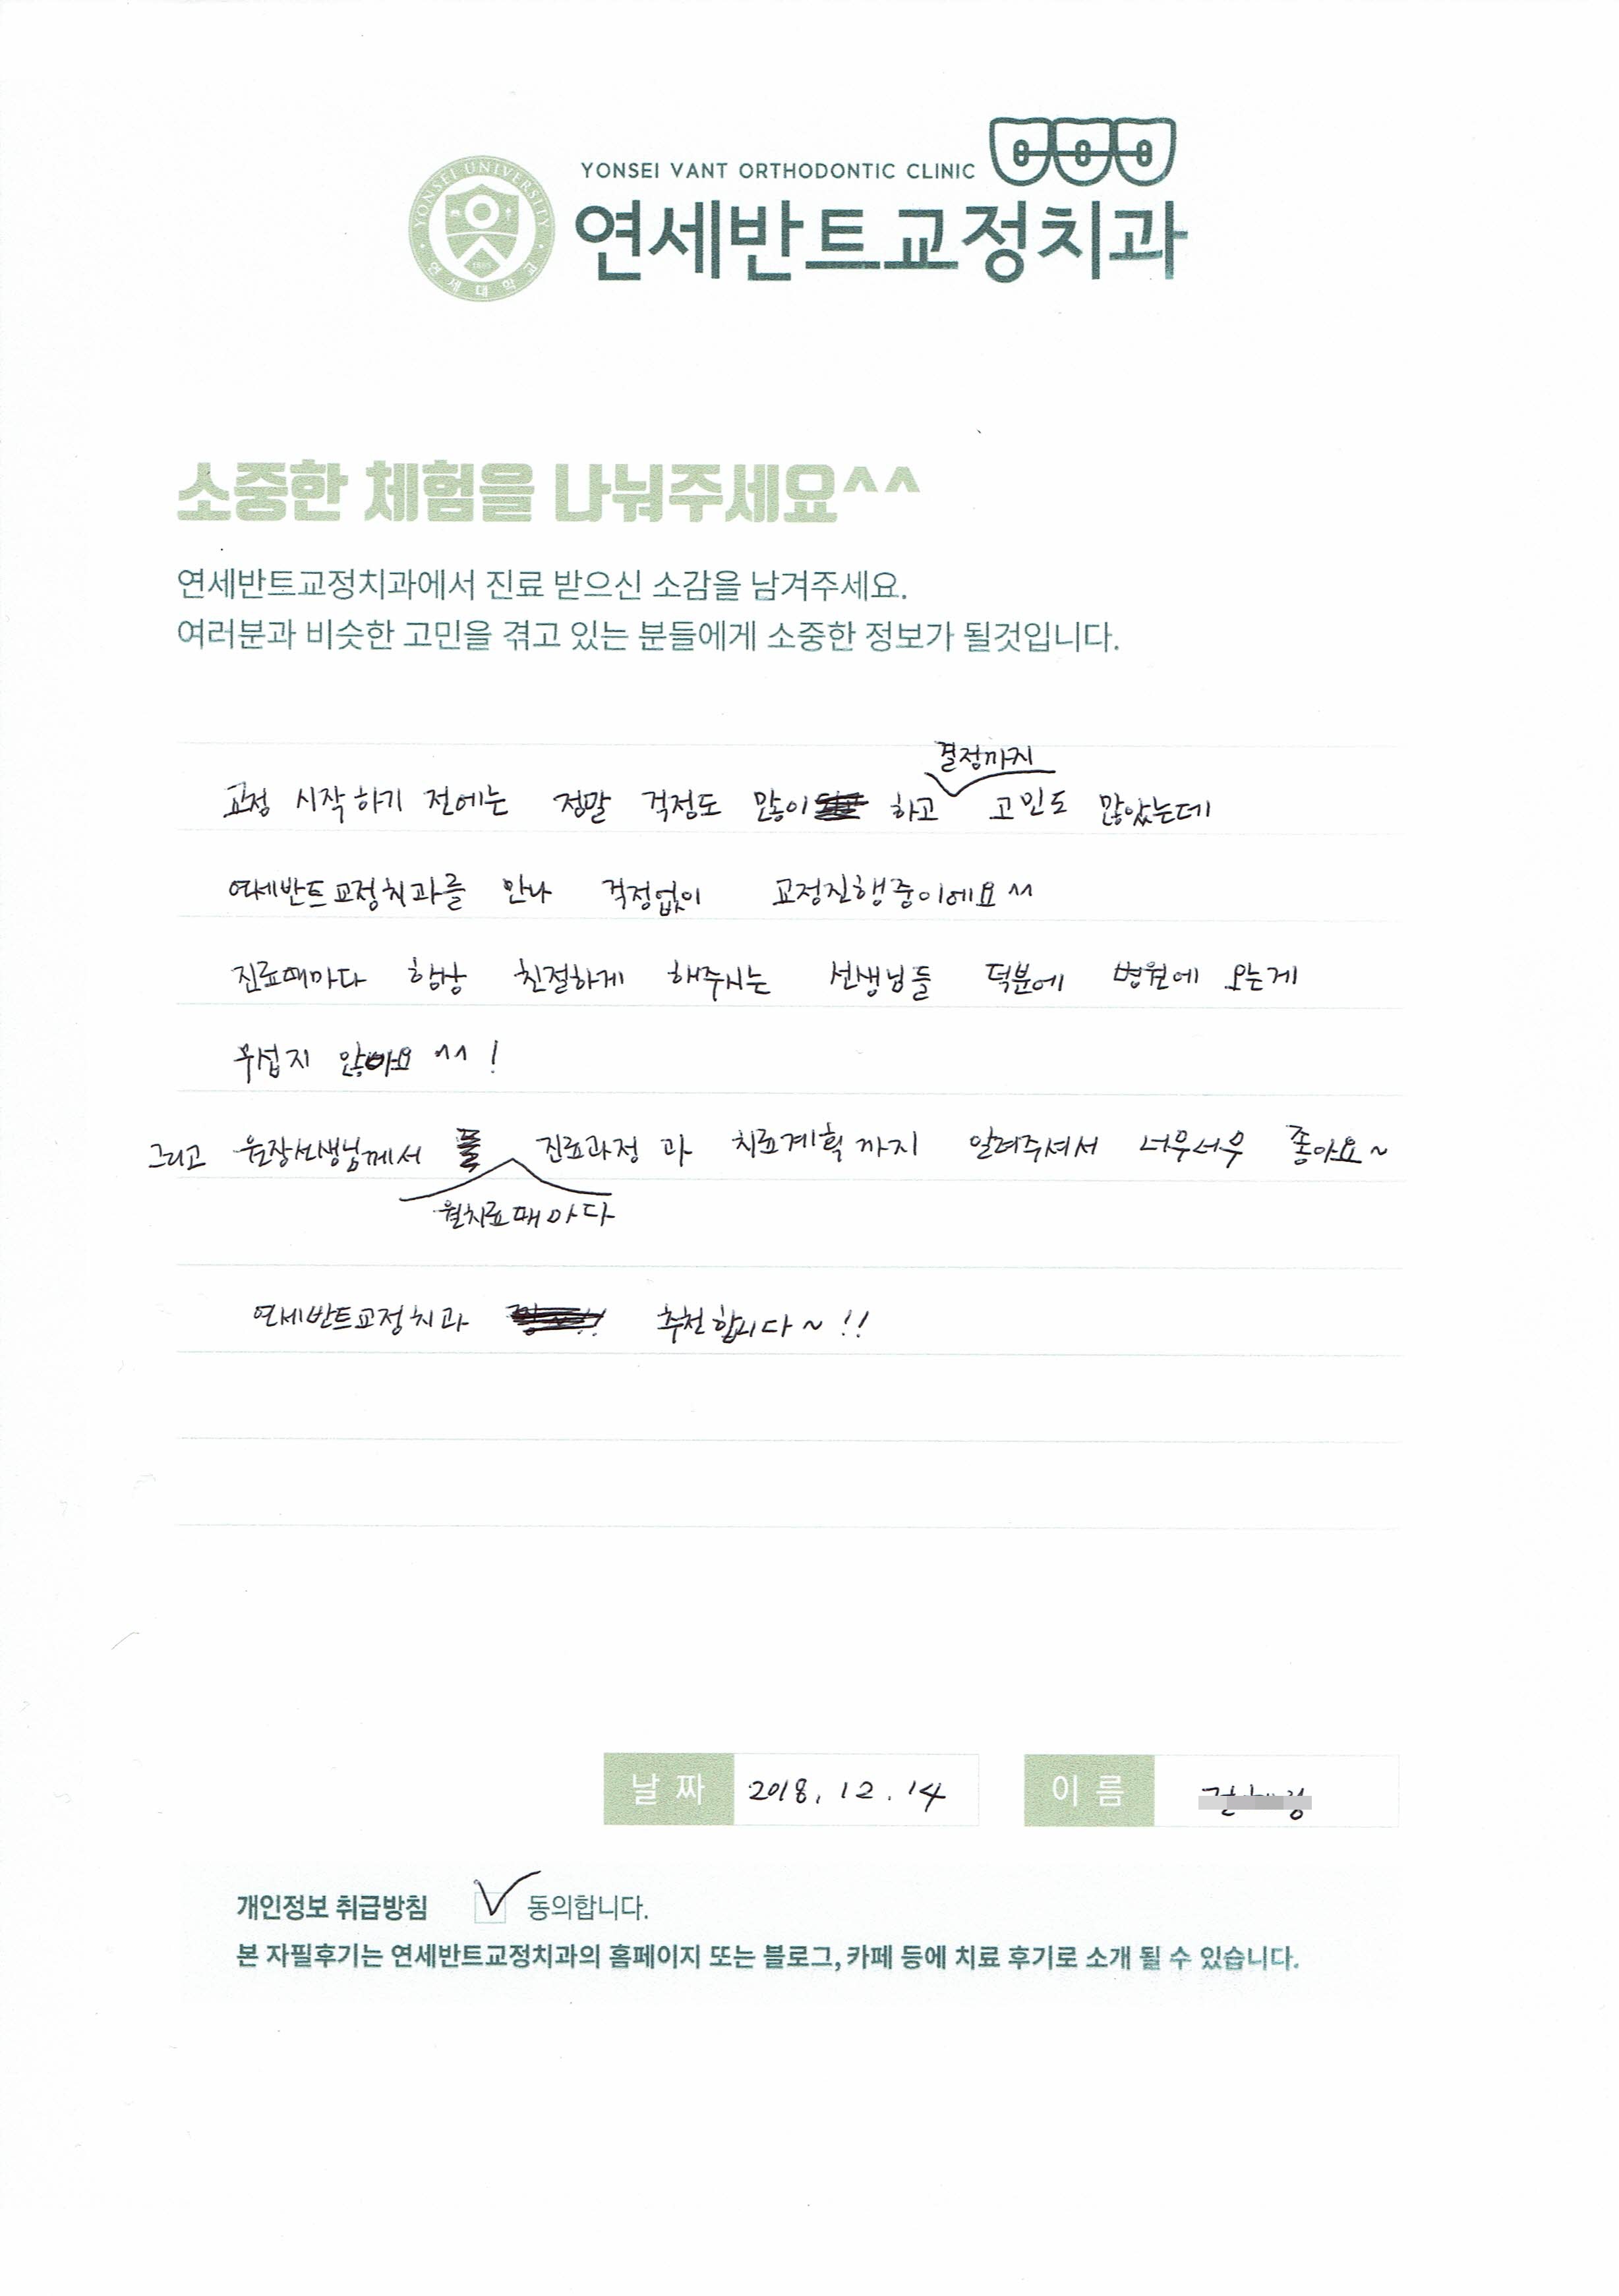 YONSEI VANT ORTHODONTIC CLINIC
YONSEI UNIVERSITY
연세대학교
연세반트교정치과
소중한 체험을 나눠주세요^^
연세반트교정치과에서 진료 받으신 소감을 남겨주세요.
여러분과 비슷한 고민을 겪고 있는 분들에게 소중한 정보가 될것입니다.
결정까지
교정 시작하기 전에는 정말 걱정도 많이 하고 고민도 많았는데
연세반트교정치과를 만나 걱정없이 교정진행중이에요 ^^
진료때마다 항상 친절하게 해주시는 선생님들 덕분에 병원에 오는게
무섭지 않아요 ^^ !
그리고 원장선생님께서 진료과정 과 치료계획 까지 알려주셔서 너무너무 좋아요~
월치료때마다
연세반트교정치과 추천합니다~ !!
날 짜 2018. 12. 14 이 름
개인정보 취급방침 동의합니다.
본 자필후기는 연세반트교정치과의 홈페이지 또는 블로그, 카페 등에 치료 후기로 소개 될 수 있습니다.